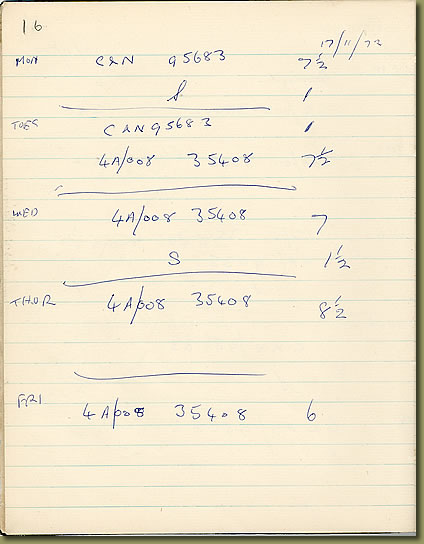 16
17/11/72
MON C&N 95683 7½
S 1
TUES C&N95683 1
4A/008 35408 7½
WED 4A/008 35408 7
S 1½
THUR 4A/008 35408 8½
FRI 4A/008 35408 6